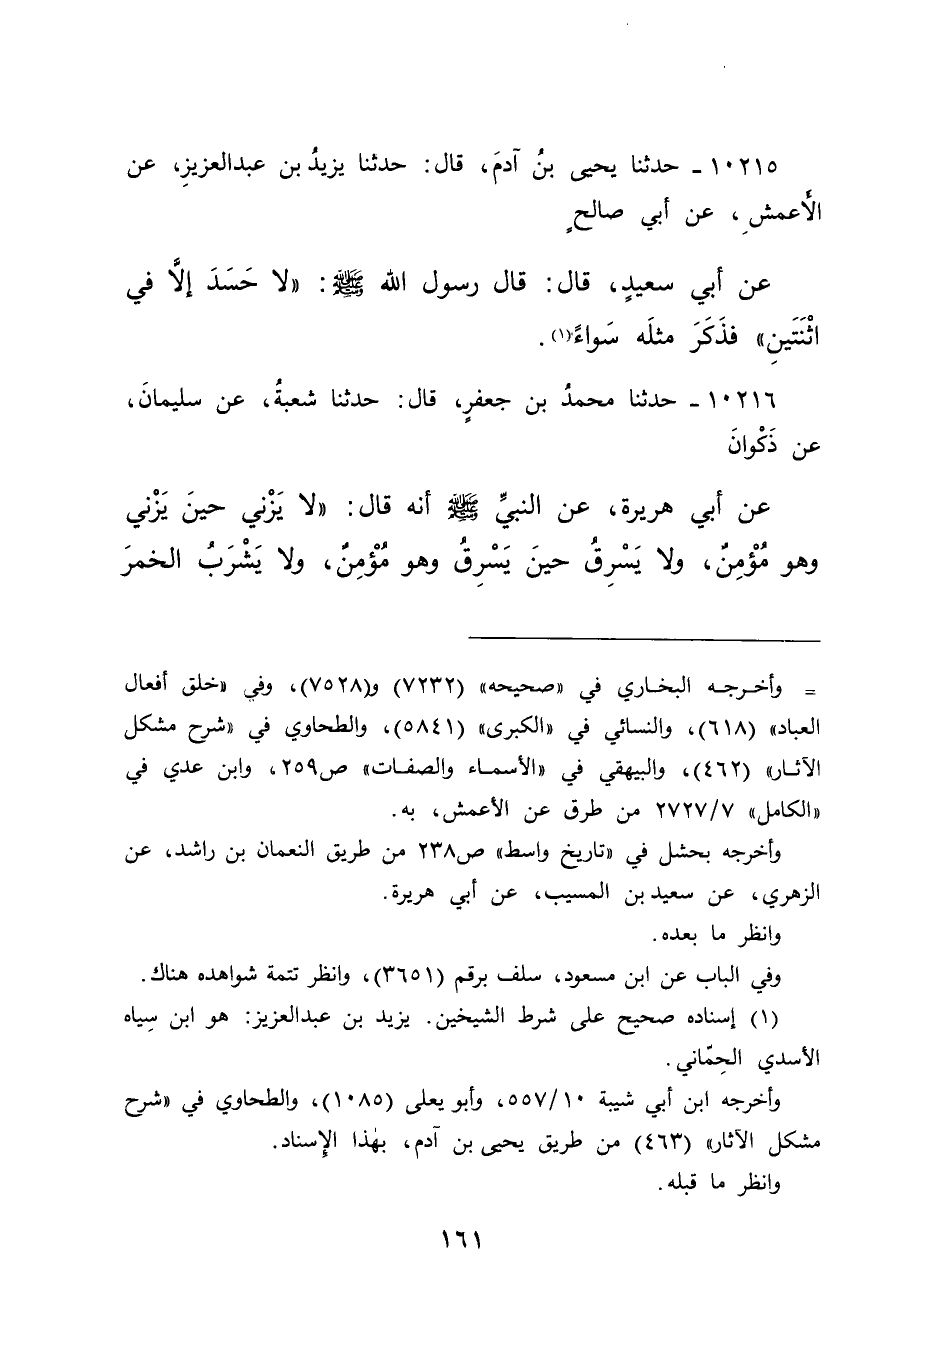 ١٠٢١٥ ـ حدثنا يحيى بنُ آدمَ، قال: حدثنا يزيدُ بن عبدالعزيزِ، عن
الأَعمشِ، عن أبي صالحٍ
عن أبي سعيدٍ، قال: قال رسول الله ﷺ: «لا حَسَدَ إلَّا في
اثْنَتَينِ» فذَكَرَ مثلَه سَواءً(١).
١٠٢١٦ ـ حدثنا محمدُ بن جعفرٍ، قال: حدثنا شعبةُ، عن سليمانَ،
عن ذَكْوانَ
عن أبي هريرة، عن النبيِّ ﷺ أنه قال: «لا يَزْني حينَ يَزْني
وهو مُؤْمِنٌ، ولا يَسْرِقُ حينَ يَسْرِقُ وهو مُؤْمِنٌ، ولا يَشْرَبُ الخمرَ
= وأخرجه البخاري في «صحيحه» (٧٢٣٢) و(٧٥٢٨)، وفي «خلق أفعال
العباد» (٦١٨)، والنسائي في «الكبرى» (٥٨٤١)، والطحاوي في «شرح مشكل
الآثار» (٤٦٢)، والبيهقي في «الأسماء والصفات» ص٢٥٩، وابن عدي في
«الكامل» ٢٧٢٧/٧ من طرق عن الأعمش، به.
وأخرجه بحشل في «تاريخ واسط» ص٢٣٨ من طريق النعمان بن راشد، عن
الزهري، عن سعيد بن المسيب، عن أبي هريرة.
وانظر ما بعده.
وفي الباب عن ابن مسعود، سلف برقم (٣٦٥١)، وانظر تتمة شواهده هناك.
(١) إسناده صحيح على شرط الشيخين. يزيد بن عبدالعزيز: هو ابن سِياه
الأسدي الحِمّاني.
وأخرجه ابن أبي شيبة ٥٥٧/١٠، وأبو يعلى (١٠٨٥)، والطحاوي في «شرح
مشكل الآثار» (٤٦٣) من طريق يحيى بن آدم، بهٰذا الإِسناد.
وانظر ما قبله.
١٦١